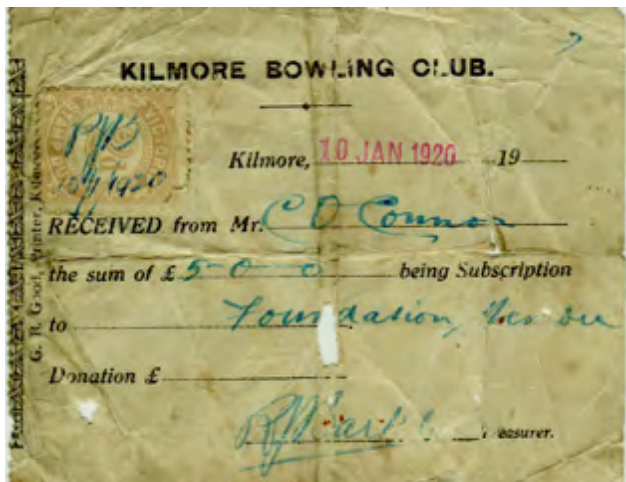 KILMORE BOWLING CLUB.
Kilmore, 10 JAN 1920 19
RECEIVED from Mr. C O Connor
the sum of £ 5-0-0 being Subscription
to Foundation,
Donation £
Treasurer.
G. R. Good, Printer, Kilmore
10/1/1920